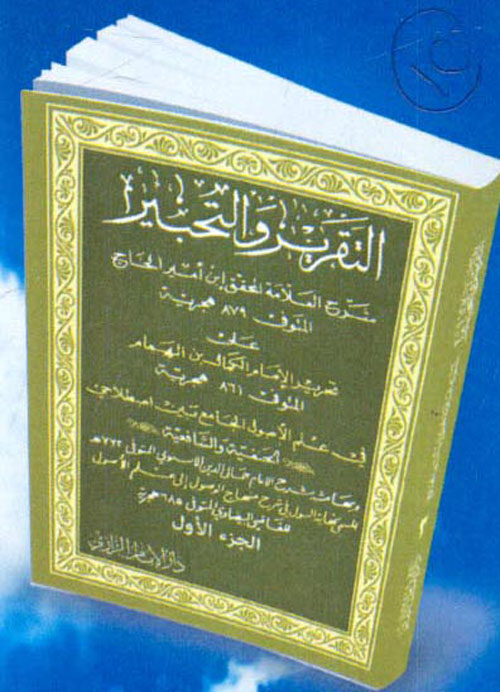 التقرير والتحبير
شرح العلامة المحقق ابن أمير الحاج
المتوفى ٨٧٩ هجرية
على
تحرير الإمام الكمال بن الهمام
المتوفى ٨٦١ هجرية
في علم الأصول الجامع بين اصطلاحي
الحنفية والشافعية
وبهامشه شرح الإمام جمال الدين الأسنوي المتوفى ٧٧٢ هـ
المسمى نهاية السول في شرح منهاج الوصول إلى علم الأصول
للقاضي البيضاوي المتوفى ٦٨٥ هجرية
الجزء الأول
دار